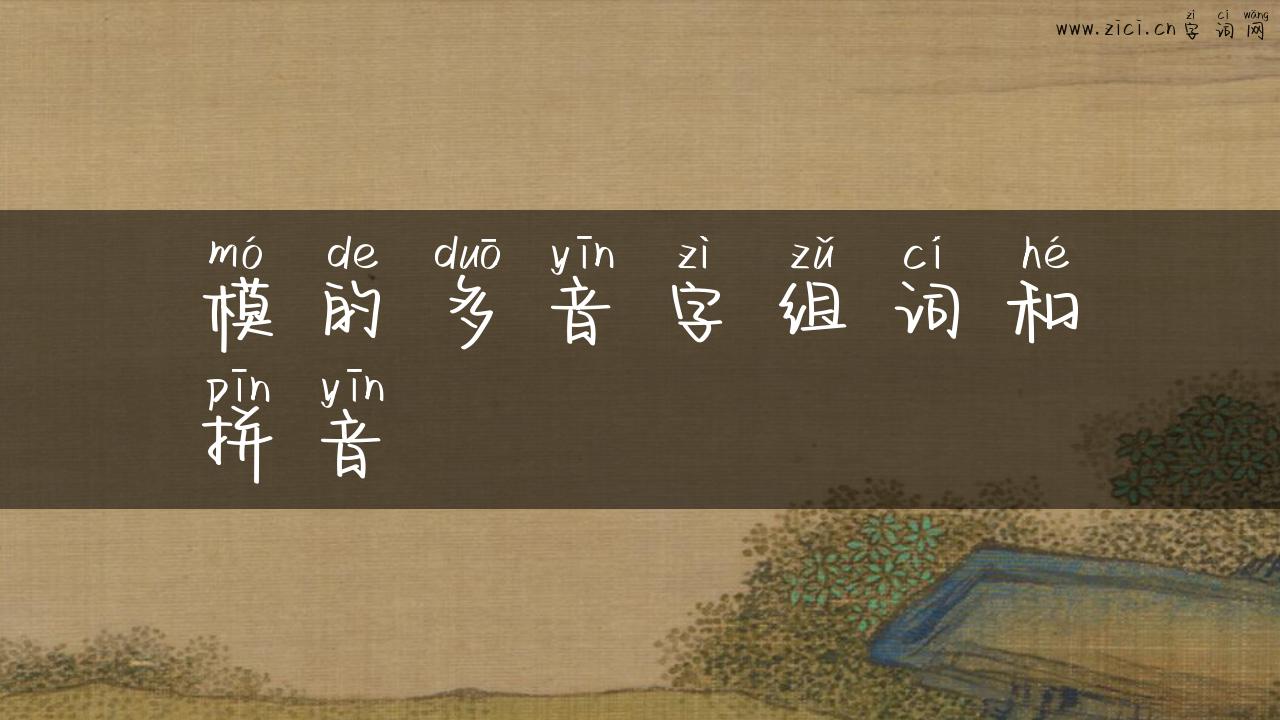 zì cí wǎng
www.zici.cn 字词网
mó de duō yīn zì zǔ cí hé
模的多音字组词和
pīn yīn
拼音